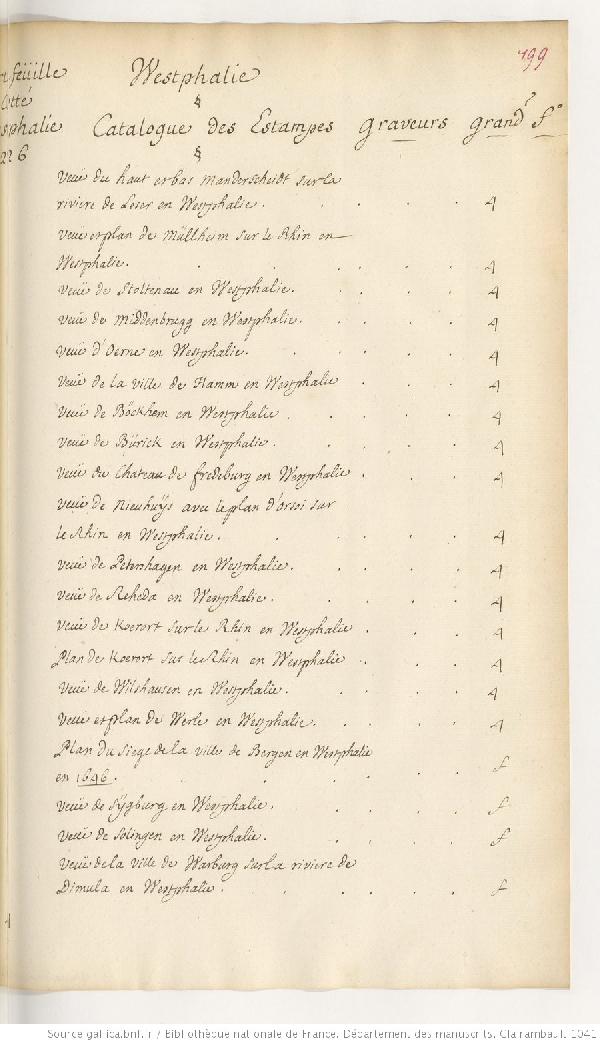 199
feüille Westphalie
Cotté §
sphalie Catalogue des Estampes graveurs grandr f°
22 6 §
Veüe du haut et bas Manderscheidt sur la
riviere de Leser en Westphalie. 4
Veüe et plan de Müllheim sur le Rhin en
Westphalie. 4
Veüe de Stoltenau en Westphalie. 4
Veüe de Middenbrugg en Westphalie. 4
Veüe d'Oerne en Westphalie. 4
Veüe de la ville de Hamm en Westphalie 4
Veüe de Böckhem en Westphalie. 4
Veüe de Bürick en Westphalie. 4
Veüe du Chateau de fredeburg en Westphalie. 4
Veüe de Nieuhuÿs avec le plan d'orsoi sur
le Rhin en Westphalie. 4
Veüe de Petershagen en Westphalie. 4
Veüe de Rheda en Westphalie. 4
Veüe de Koerort sur le Rhin en Westphalie. 4
Plan de Koerort sur le Rhin en Westphalie. 4
Veüe de Wilshausen en Westphalie. 4
Veüe et plan de Werle en Westphalie. 4
Plan du Siege de la ville de Bergen en Westphalie
en 1646. f
Veüe de Sÿgburg en Westphalie. f
Veüe de Solingen en Westphalie. f
Veüe de la ville de Warburg sur la riviere de
Dimula en Westphalie. f
4
Source gallica.bnf.fr / Bibliothèque nationale de France. Département des manuscrits. Clairambault 1041